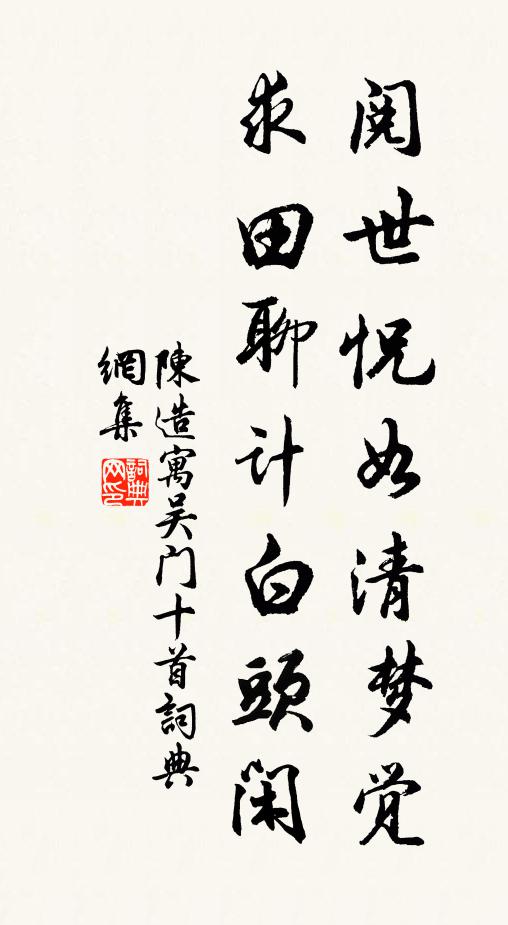 阅世怳如清梦觉
求田聊计白頭闲
陳造寓吴门十首詞典
網集
詞典网印